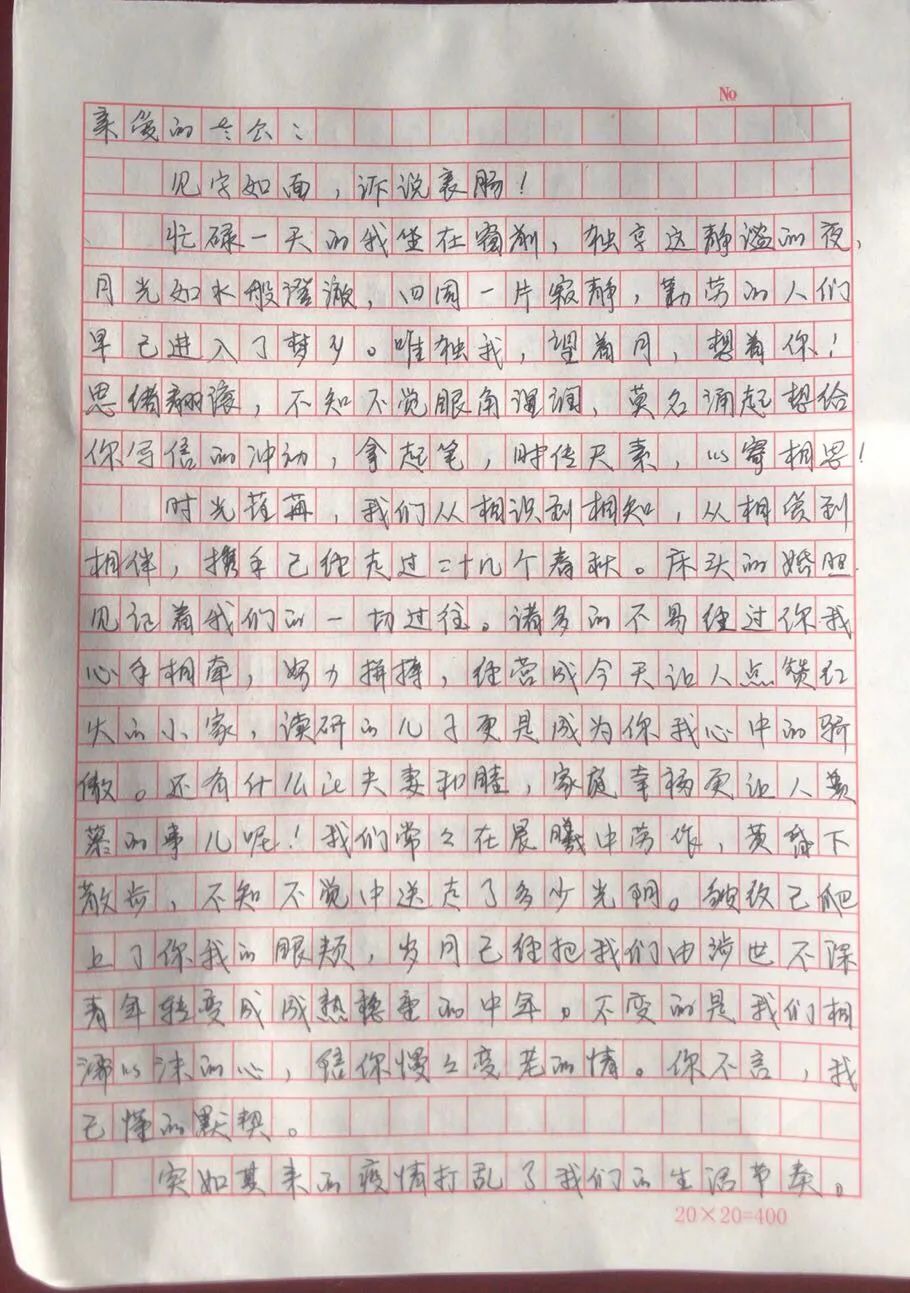 No
亲爱的老公：
见字如面，诉说衷肠！
忙碌一天的我坐在窗前，独享这静谧的夜，
月光如水般澄澈，四周一片寂静，勤劳的人们
早已进入了梦乡。唯独我，望着月，想着你！
思绪翻滚，不知不觉眼角湿润，莫名涌起想给
你写信的冲动，拿起笔，时传尺素，以寄相思！
时光荏苒，我们从相识到相知，从相爱到
相伴，携手已经走过二十几个春秋。床头的婚照
见证着我们的一切过往。诸多的不易经过你我
心手相牵，努力拼搏，经营成今天让人点赞红
火的小家，读研的儿子更是成为你我心中的骄
傲。还有什么比夫妻和睦，家庭幸福更让人羡
慕的事儿呢！我们常々在晨曦中劳作，黄昏下
散步，不知不觉中送走了多少光阴。皱纹已爬
上了你我的眼颊，岁月已经把我们由涉世不深
青年转变成成熟稳重的中年。不变的是我们相
濡以沫的心，陪你慢々变老的情。你不言，我
已懂的默契。
突如其来的疫情打乱了我们的生活节奏。
20×20=400